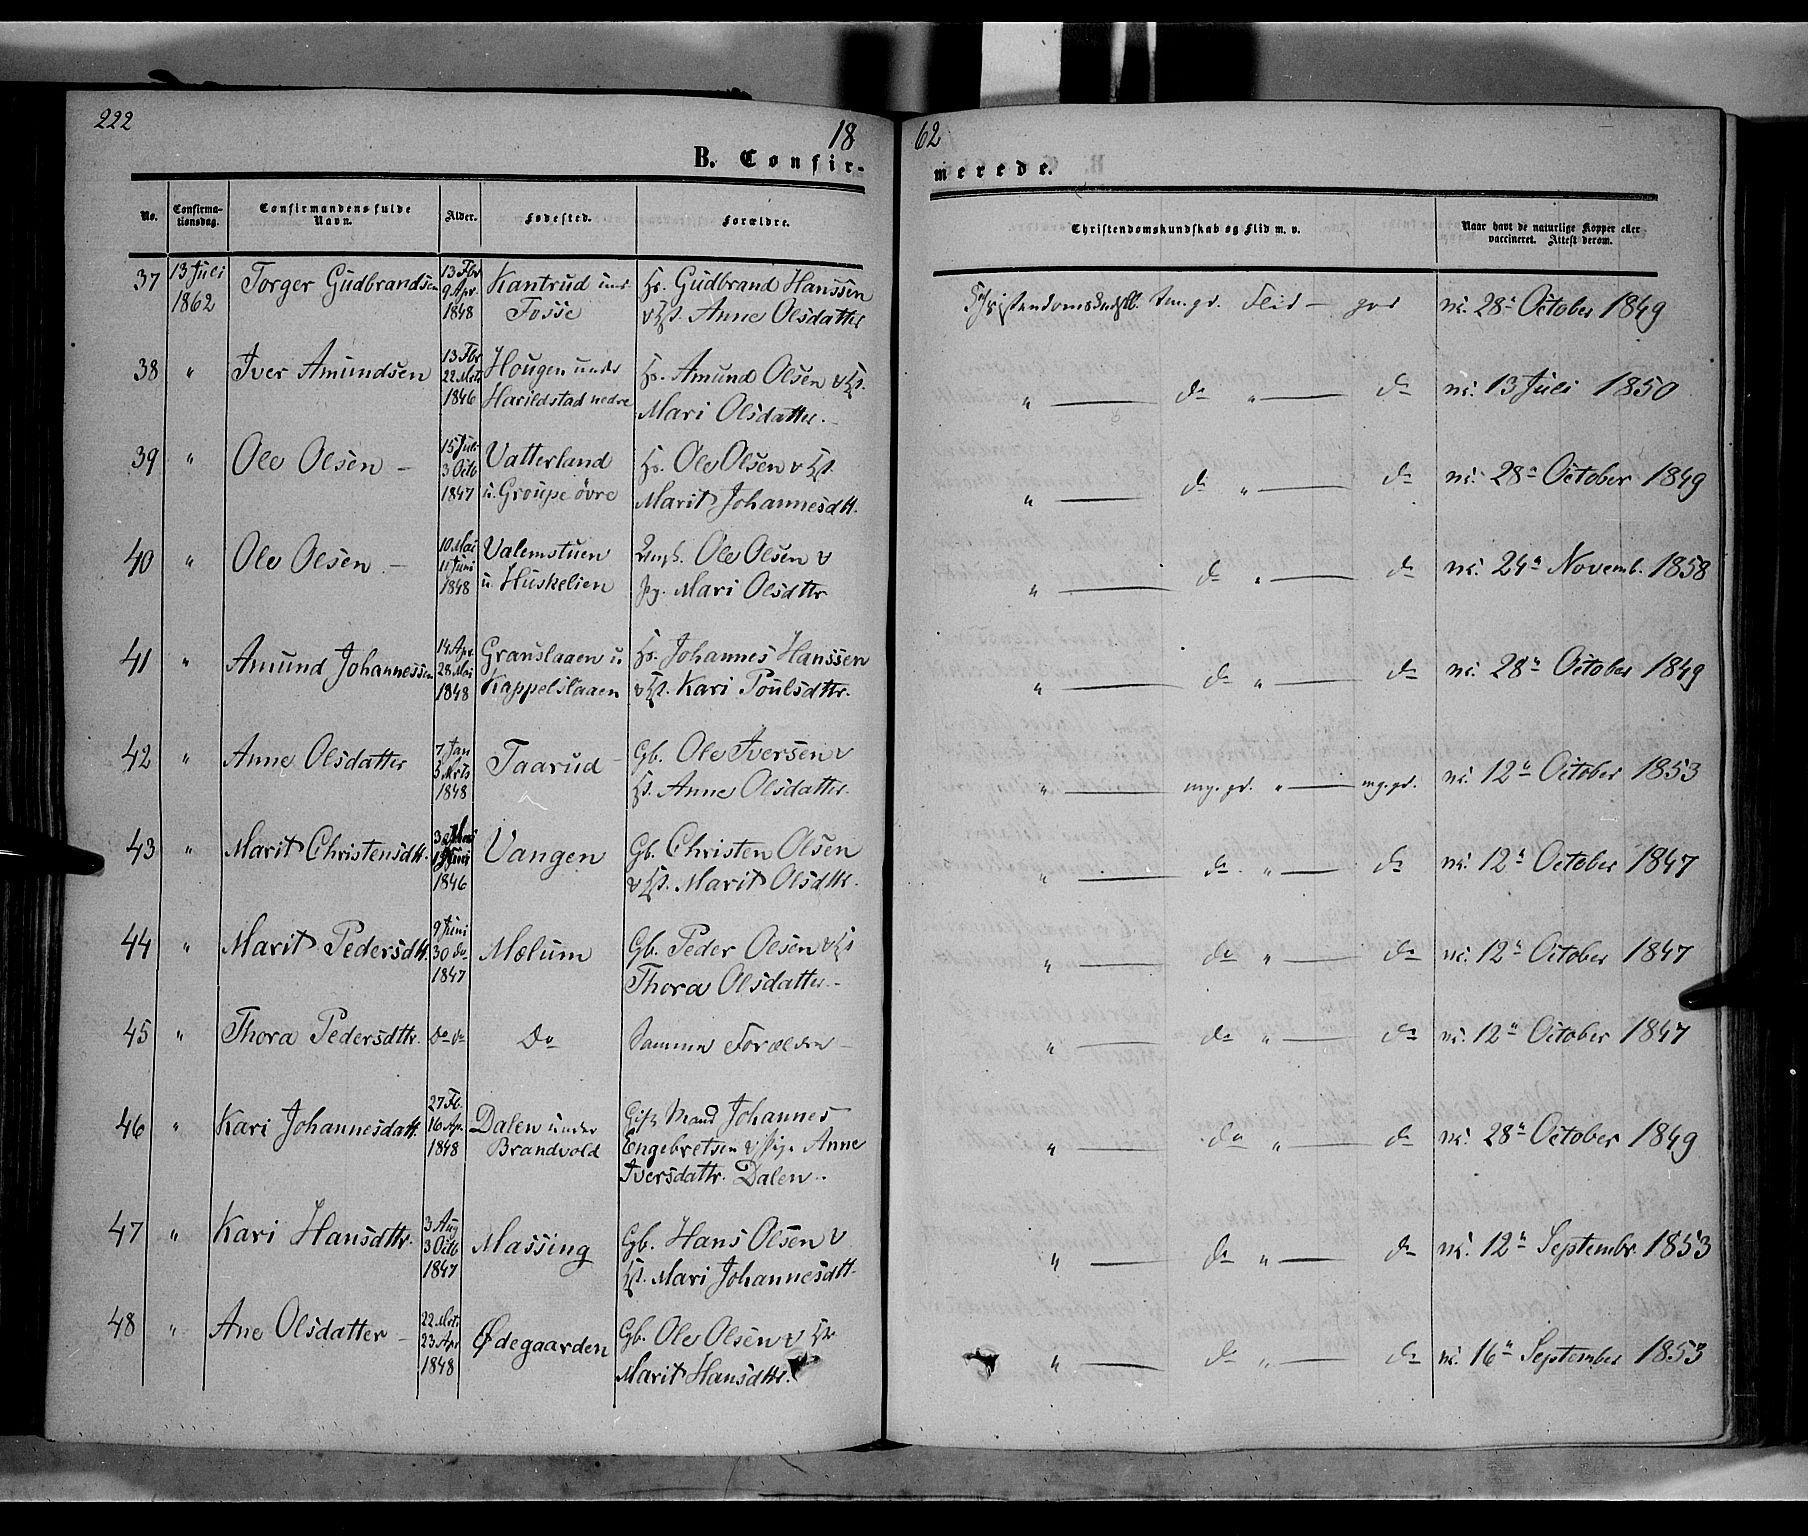 222
18
62
B. Confir-
merede.
No.
Confirma-
tionsdag.
Confirmandens fulde
Navn.
Alder.
Fødested.
Forældre.
Christendomskundskab og Flid m. v.
Naar havt de naturlige Kopper eller
vaccineret. Attest derom.
37 13 Juli 1862 Torger Gudbrandsen 13 Fbr 9 Apr. 1848 Kantrud und Fosse Hs. Gudbrand Hanssen v Hst. Anne Olsdatter Christendomskndsk. tm. gd. Flid — god nr. 28 October 1849
38 " Iver Amundsen 13 Fbr 22 Mrts 1846 Hougen under Harildstad nedre Hs. Amund Olsen v Hst. Mari Olsdatter. " — do " — do nr. 13 Juli 1850
39 " Ole Olsen — 15 Juli 3 Octb 1847 Vatterland u. Groupe övre Hs. Ole Olsen v Hst. Marit Johannesdtt. " — do " — do nr. 28 October 1849
40 " Ole Olsen — 10 Mai 11 Juni 1848 Valemstuen u. Huskelien Ungk. Ole Olsen v Pg. Mari Olsdttr " — do " — do nr. 24 Novemb. 1858
41 " Amund Johannessen 14 Apr. 28 Mai 1848 Granslaaen u Kappelslaaen Hs. Johannes Hanssen v Hst. Kari Poulsdttr. " — do " — do nr. 28 October 1849
42 " Anne Olsdatter 7 Jan 5 Mrts 1848 Taarud Gb. Ole Iversen v Hst. Anne Olsdatter. " — mg. gd. " — mg. gd. nr. 12 October 1853
43 " Marit Christensdtt. 1846 Vangen Gb. Christen Olsen v Hst. Marit Olsdtt. " — do " — do nr. 12 October 1847
44 " Marit Pedersdtt. 9 Juni 30 do 1847 Mælum Gb. Peder Olsen v Hst Thora Olsdatter. " — do " — do nr. 12 October 1847
45 " Thora Pedersdttr. do do Do Samme Forældre — " — do " — do nr. 12 October 1847
46 " Kari Johannesdatt. 27 Fb. 16 Ap. 1848 Dalen under Brandvold Gift Mand Johannes Engebretsen v Pige Anne Iversdattr. Dalen. " — do " — do nr. 28 October 1849
47 " Kari Hansdttr. 3 Aug 3 Octb 1847 Massing Gb. Hans Olsen v Hst. Mari Johannesdtt. " — do " — do nr. 12 Septembr. 1853
48 " Ane Olsdatter — 22 Mrts 23 Apr 1848 Ødegaarden Gb. Ole Olsen v Hst Marit Hansdttr. " — do " — do nr. 16 September 1853